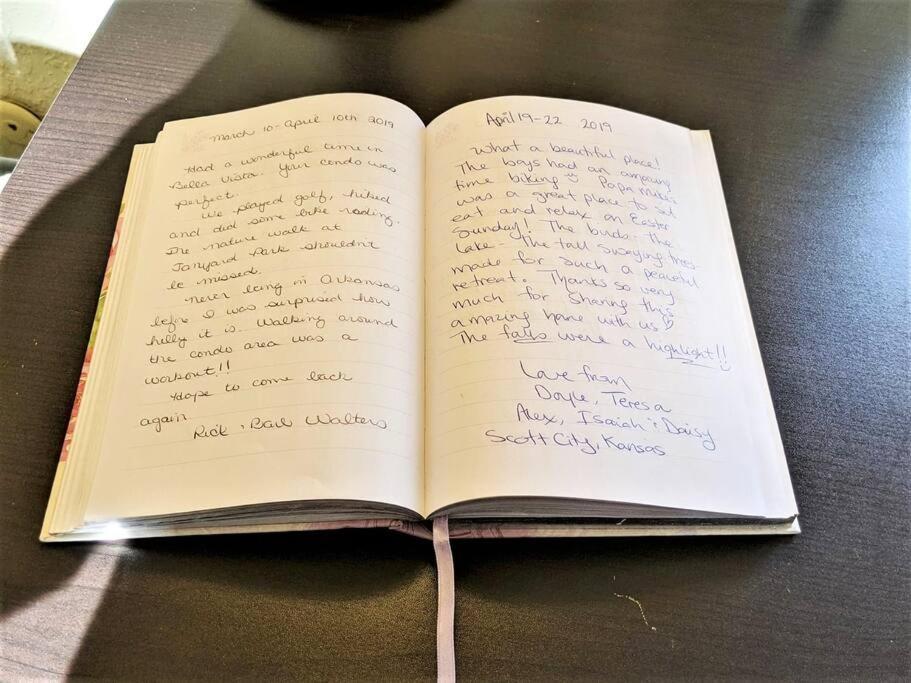 March 10-April 10th 2019
Had a wonderful time in
Bella Vista. Your condo was
perfect.
We played golf, hiked
and did some bike riading.
The nature walk at
Tanyard Park shouldn't
be missed.
Never being in Arkansas
before I was surprised how
hilly it is. Walking around
the condo area was a
workout!!
Hope to come back
again
Rick & Walters
April 19-22 2019
What a beautiful place!
The boys had an amazing
time biking Papa Mikes
was a great place to sit
eat and relax on Easter
Sunday! The birds - The
lake - The tall swaying trees
made for such a peaceful
retreat. Thanks so very
much for sharing this
amazing home with us ♡
The falls were a highlight!!
Love from
Doyle, Teresa
Alex, Isaiah & Daisy
Scott City, Kansas